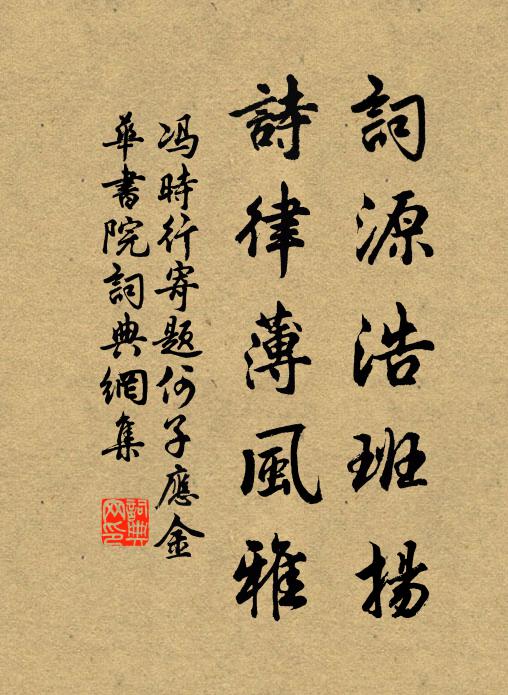 詞源浩班揚
詩律薄風雅
冯時行寄題何子應金
華書院詞典網集
詞典
网印